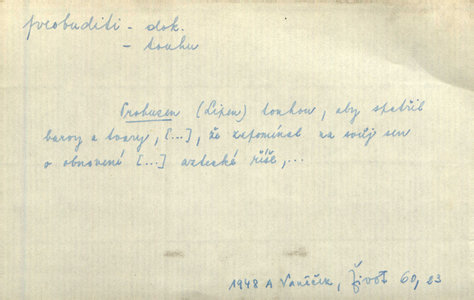 probuditi - dok.
- touhu
Probuzen (Lipen) touhou, aby spatřil
barvy a tvary, [...], že zapomínal na svůj sen
o obnovené [...] aztecké říše,...
1948 A Vaněček, Život 60, 23